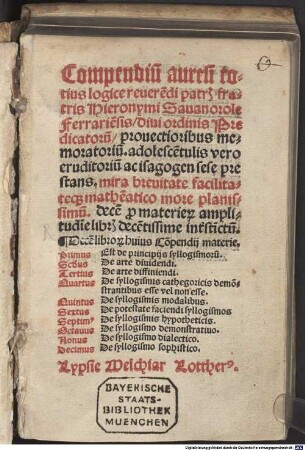 Compendiũ aureũ to-
tius logice reuerẽdi patrꝭ fra-
tris Hieronymi Sauanorole
Ferrariẽsis/ Diui ordinis Pre
dicatorũ/ prouectioribus me-
moratoriũ. adolescẽtulis vero
eruditoriũ ac isagogen sese pre
stans. mira breuitate facilita-
teqꝫ mathẽatico more planis-
simũ. decẽ ꝓ materieꝝ ampli-
tudie librꝭ decẽtissime instictũ.
¶ Decẽ libroꝝ huius Cõpendij materie.
Primus Est de principijs syllogismorũ.
Scðus De arte diuidendi.
Tertius De arte diffiniendi.
Quartus De syllogismis cathegoricis demõ-
strantibus esse vel non esse.
Quintus De syllogismis modalibus.
Sextus De potestate faciendi syllogismos
Septimꝰ De syllogismis hypotheticis.
Octauus De syllogismo demonstratiuo.
Nonus De syllogismo dialectico.
Decimus De syllogismo sophistico.
Lypsie Melchiar Lottherꝰ.
BAYERISCHE
STAATS-
BIBLIOTHEK
MUENCHEN